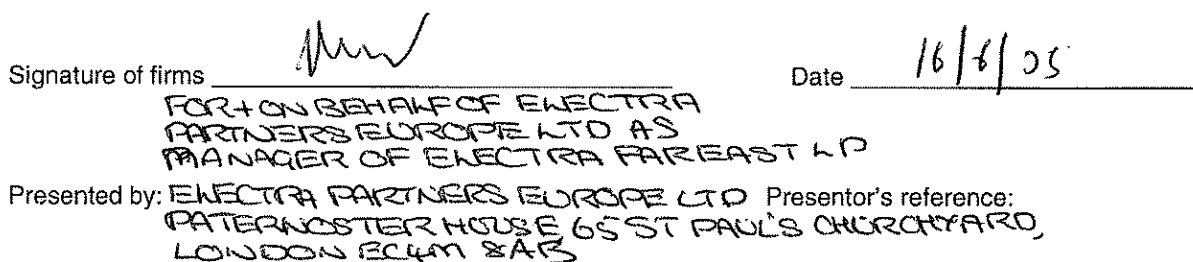 Signature of firms Date 16/6/05
FOR + ON BEHALF OF ELECTRA
PARTNERS EUROPE LTD AS
MANAGER OF ELECTRA FAR EAST LP
Presented by: ELECTRA PARTNERS EUROPE LTD Presentor's reference:
PATERNOSTER HOUSE 65 ST PAUL'S CHURCHYARD,
LONDON EC4M 8AB